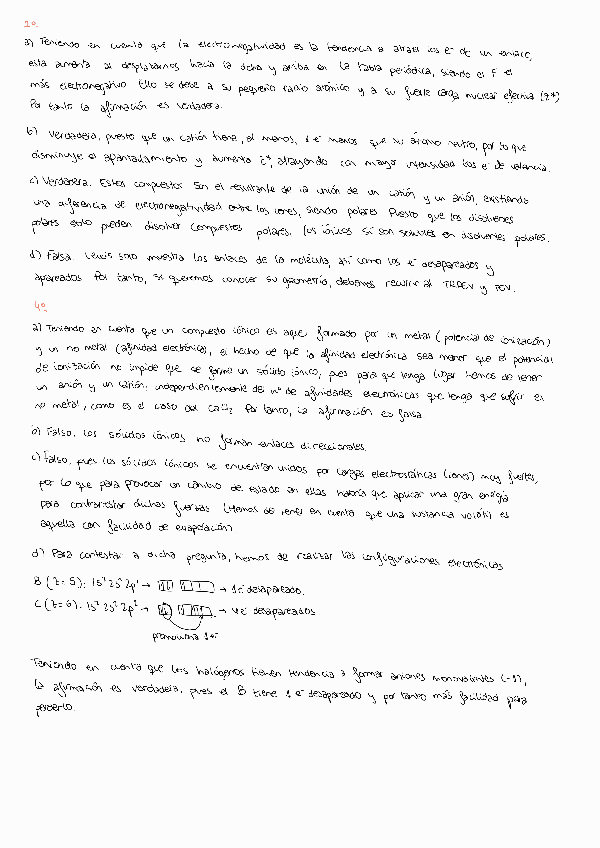 1º
a) Teniendo en cuenta que la electronegatividad es la tendencia a atraer los e⁻ de un enlace,
esta aumenta al desplazarnos hacia la dcha y arriba en la tabla periódica, siendo el F el
más electronegativo. Ello se debe a su pequeño radio atómico y a su fuerte carga nuclear efectiva (z*)
Por tanto la afirmación es verdadera.
b) Verdadera, puesto que un catión tiene, al menos, 1 e⁻ menos que su átomo neutro, por lo que
disminuye el apantallamiento y aumenta z*, atrayendo con mayor intensidad los e⁻ de valencia.
c) Verdadera. Estos compuestos son el resultante de la unión de un catión y un anión, existiendo
una diferencia de electronegatividad entre los iones, siendo polares. Puesto que los disolventes
polares solo pueden disolver compuestos polares, los iónicos sí son solubles en disolventes polares.
d) Falsa. Lewis solo muestra los enlaces de la molécula, así como los e⁻ desapareados y
apareados. Por tanto, si queremos conocer su geometría, debemos recurrir al TRPEV y TEV.
4º
a) Teniendo en cuenta que un compuesto iónico es aquel formado por un metal (potencial de ionización)
y un no metal (afinidad electrónica), el hecho de que la afinidad electrónica sea menor que el potencial
de ionización no impide que se forme un sólido iónico, pues para que tenga lugar hemos de tener
un anión y un catión, independientemente del nº de afinidades electrónicas que tenga que sufrir el
no metal, como es el caso del CaCl₂. Por tanto, la afirmación es falsa
b) Falso. Los sólidos iónicos no forman enlaces direccionales.
c) Falso, pues los sólidos iónicos se encuentran unidos por cargas electrostáticas (iones) muy fuertes,
por lo que para provocar un cambio de estado en ellas habría que aplicar una gran energía
para contrarrestar dichas fuerzas (Hemos de tener en cuenta que una sustancia volátil es
aquella con facilidad de evaporación)
d) Para contestar a dicha pregunta, hemos de realizar las configuraciones electrónicas
B (Z=5): 1s² 2s² 2p¹ → → 1e⁻ desapareado.
C (Z=6): 1s² 2s² 2p² → → 4e⁻ desapareados
promociona 1e⁻
Teniendo en cuenta que los halógenos tienen tendencia a formar aniones monovalentes (-1),
la afirmación es verdadera, pues el B tiene 1 e⁻ desapareado y por tanto más facilidad para
perderlo.